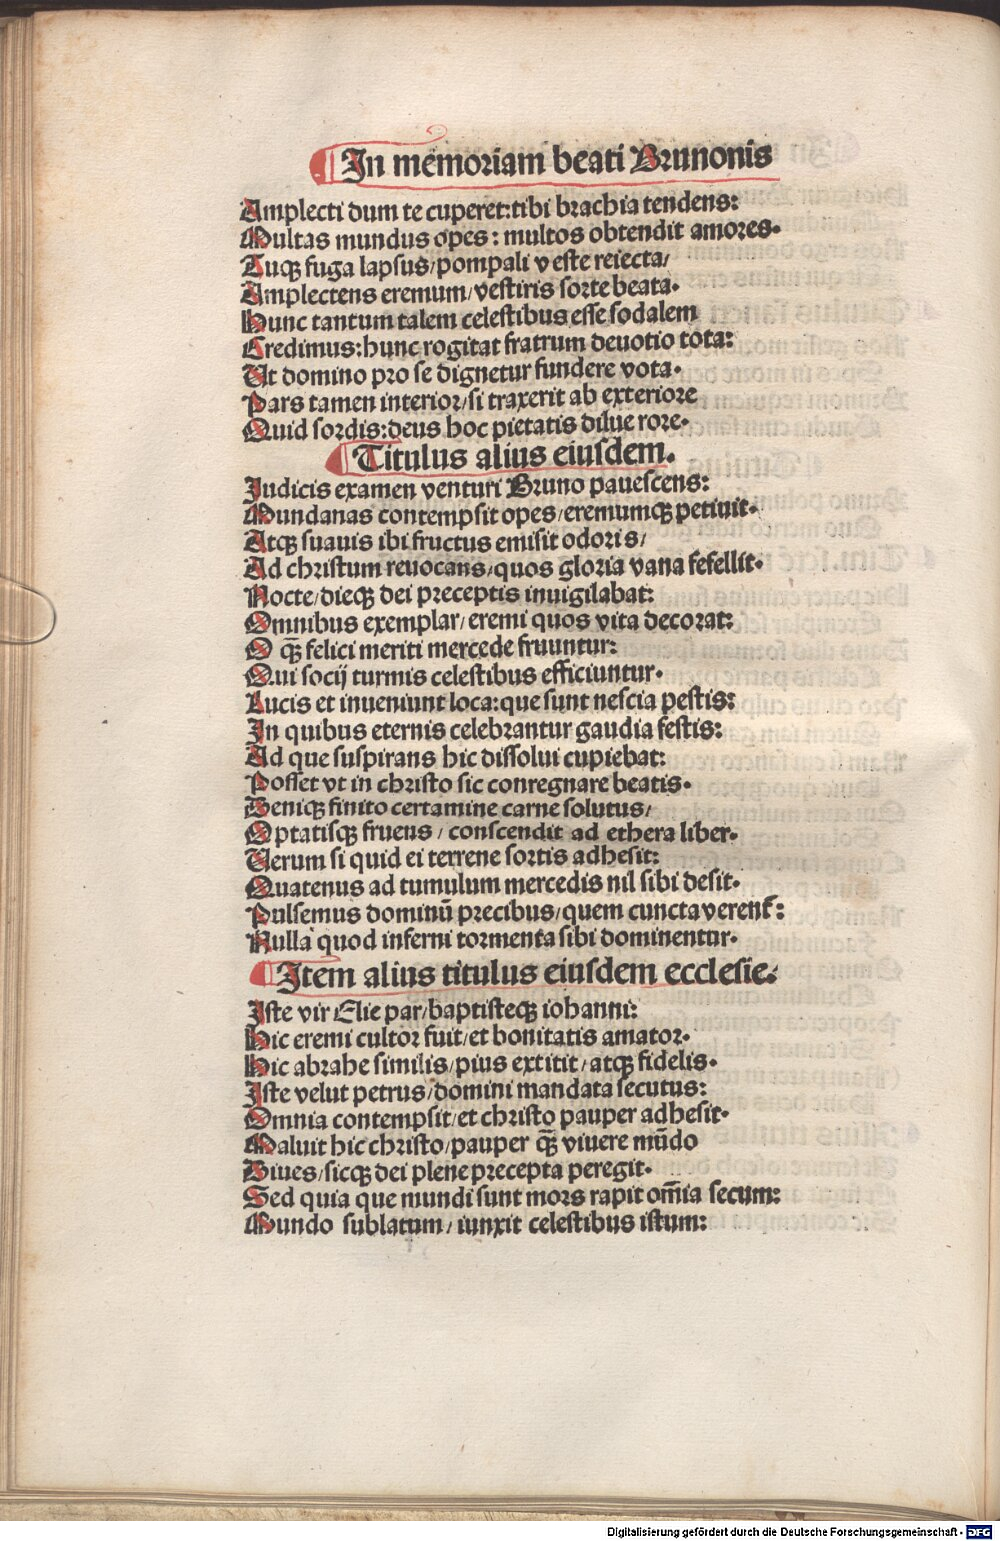 In memoriam beati Brunonis
Amplecti dum te cuperet:tibi brachia tendens:
Multas mundus opes: multos obtendit amores.
Tuqꝫ fuga lapsus/pompali veste reiecta/
Amplectens eremum/vestiris sorte beata.
Hunc tantum talem celestibus esse sodalem
Credimus:hunc rogitat fratrum deuotio tota:
Ut domino pro se dignetur fundere vota.
Pars tamen interior/si traxerit ab exteriore
Quid sordis:deus hoc pietatis dilue rore.
Titulus alius eiusdem.
Judicis examen venturi Bruno pauescens:
Mundanas contempsit opes/eremumqꝫ petiuit.
Atqꝫ suauis ibi fructus emisit odoris/
Ad christum reuocans/quos gloria vana fefellit.
Nocte/dieqꝫ dei preceptis inuigilabat:
Omnibus exemplar/eremi quos vita decorat:
O qꝫ̄ felici meriti mercede fruuntur:
Qui socij turmis celestibus efficiuntur.
Lucis et inueniunt loca:que sunt nescia pestis:
In quibus eternis celebrantur gaudia festis:
Ad que suspirans hic dissolui cupiebat:
Posset vt in christo sic conregnare beatis.
Deniqꝫ finito certamine carne solutus/
Optatisqꝫ fruens/ conscendit ad ethera liber.
Uerum si quid ei terrene sortis adhesit:
Quatenus ad tumulum mercedis nil sibi desit.
Pulsemus dominū precibus/quem cuncta verent᷑:
Nulla quod inferni tormenta sibi dominentur.
Item alius titulus eiusdem ecclesie.
Iste vir Elie par/baptisteqꝫ iohanni:
Hic eremi cultor fuit/et bonitatis amator.
Hic abrahe similis/pius extitit/atqꝫ fidelis.
Iste velut petrus/domini mandata secutus:
Omnia contempsit/et christo pauper adhesit.
Maluit hic christo/pauper qꝫ̄ viuere mūdo
Diues/sicqꝫ dei plene precepta peregit.
Sed quia que mundi sunt mors rapit om̄ia secum:
Mundo sublatum/iunxit celestibus istum:
Digitalisierung gefördert durch die Deutsche Forschungsgemeinschaft - DFG